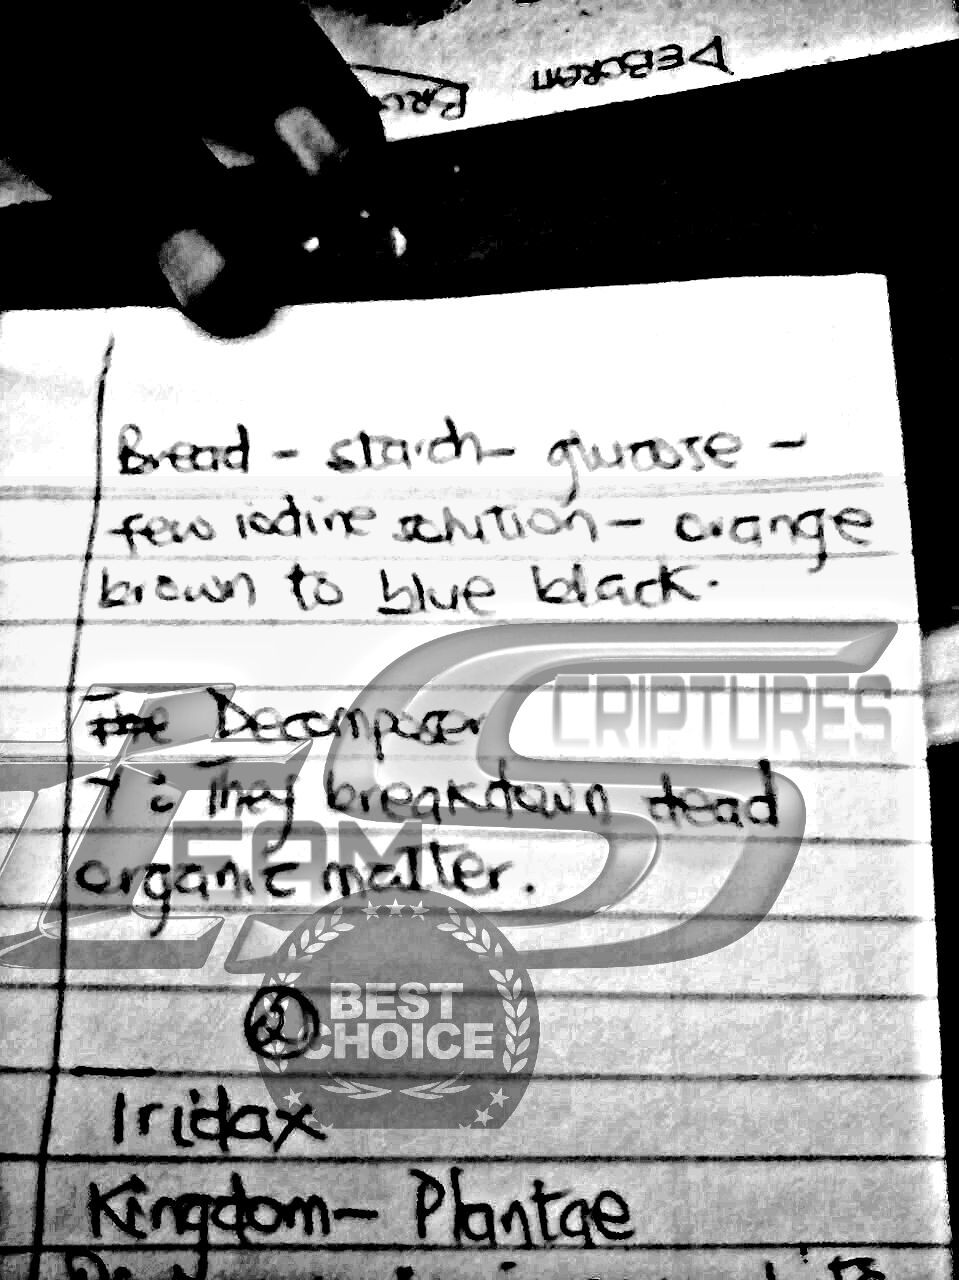 DEBORAH
Bread - starch - glucose -
few iodine solution - orange
brown to blue black.
CRIPTURES
The Decomposer
Y : They breakdown dead
TEAM
organic matter.
BEST
CHOICE
2
Tridax
Kingdom - Plantae